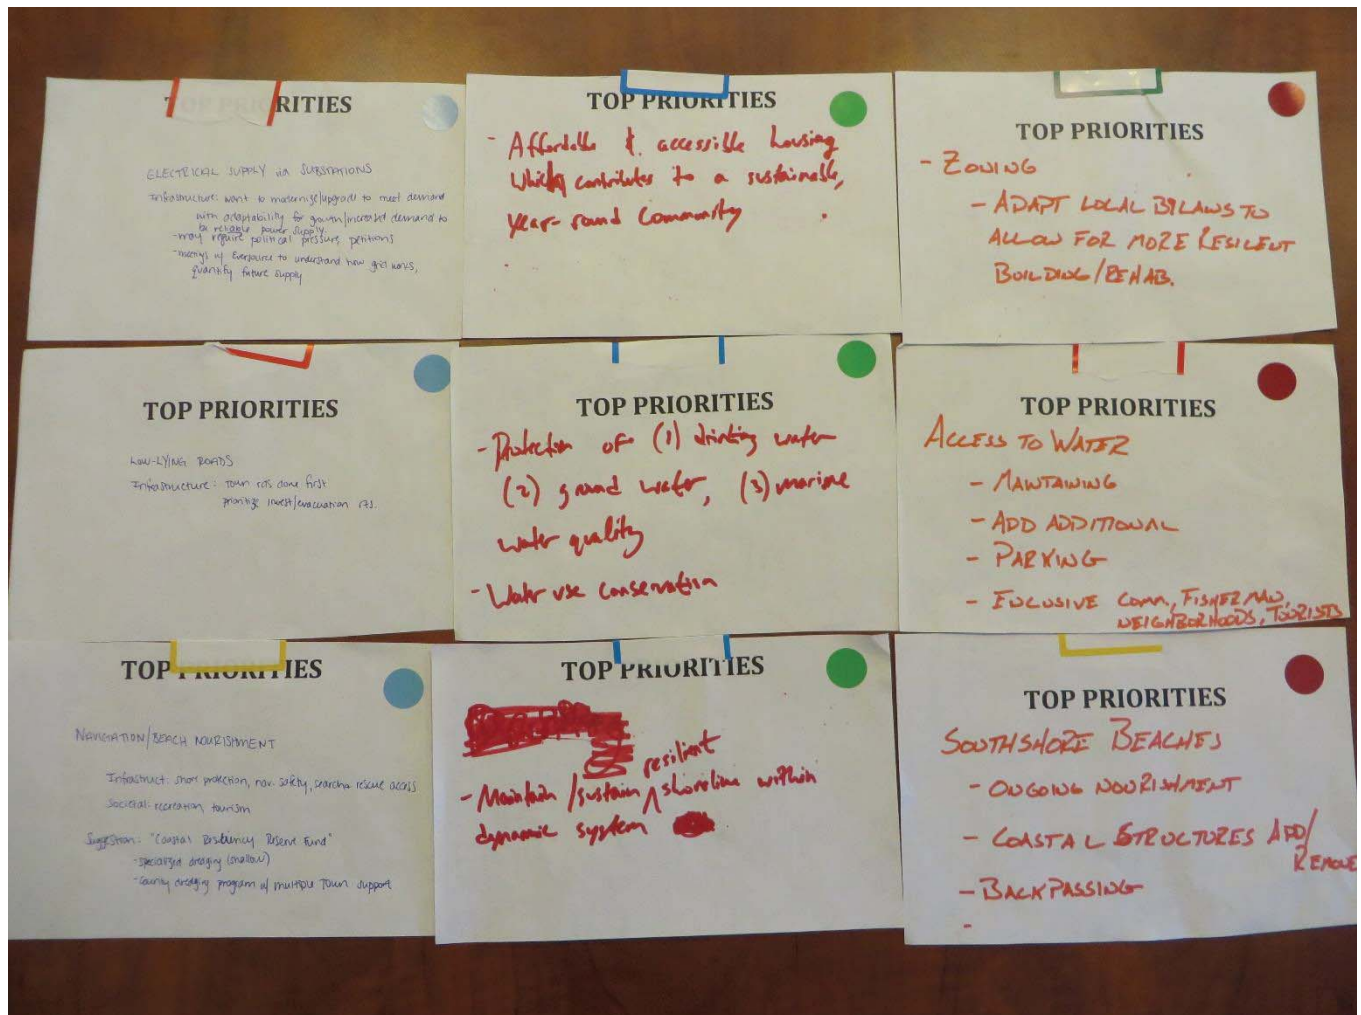 TOP PRIORITIES
ELECTRICAL SUPPLY via SUBSTATIONS
Infrastructure: want to modernize/upgrade to meet demand
with adaptability for growth/increased demand to
be reliable power supply.
-may require political pressure, petitions
-meetings w/ Eversource to understand how grid works,
quantify future supply
TOP PRIORITIES
- Affordable & accessible housing
which contributes to a sustainable,
year-round community
TOP PRIORITIES
- ZONING
- ADAPT LOCAL BYLAWS TO
ALLOW FOR MORE RESILENT
BUILDING/REHAB.
TOP PRIORITIES
LOW-LYING ROADS
Infrastructure: Town rds done first
prioritize invest/evacuation rts.
TOP PRIORITIES
- Protection of (1) drinking water
(2) ground water, (3) marine
water quality
- Water use conservation
TOP PRIORITIES
ACCESS TO WATER
- MAINTAINING
- ADD ADDITIONAL
- PARKING
- INCLUSIVE COMM, FISHERMAN,
NEIGHBORHOODS, TOURISTS
TOP PRIORITIES
NAVIGATION/BEACH NOURISHMENT
Infrastruct: shore protection, nav. safety, search & rescue access
Societal: recreation, tourism
Suggestion: "Coastal Resiliency Reserve Fund"
-specialized dredging (shallow)
-County dredging program w/ multiple Town support
TOP PRIORITIES
- Maintain/sustain resilient shoreline within
dynamic system
TOP PRIORITIES
SOUTHSHORE BEACHES
- ONGOING NOURISHMENT
- COASTAL STRUCTURES ADD/
REMOVE
- BACKPASSING
-